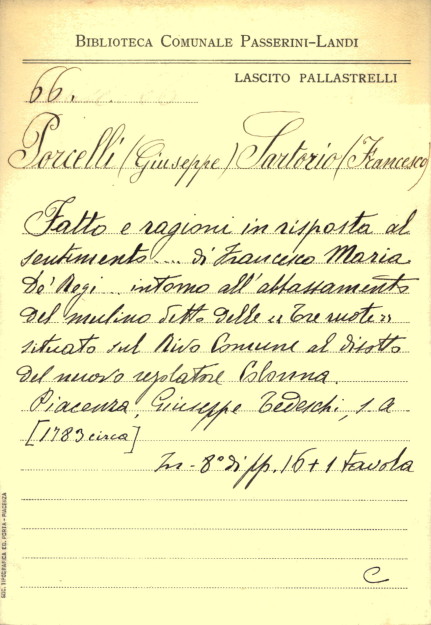 BIBLIOTECA COMUNALE PASSERINI-LANDI
LASCITO PALLASTRELLI
66.
Porcelli (Giuseppe) Sartorio (Francesco)
Fatto e ragioni in risposta al
sentimento .... di Francesco Maria
De' Regi .. intorno all'abbassamento
del mulino detto delle "Tre ruote"
situato sul Rivo Comune al disotto
del nuovo regolatore Colonna.
Piacenza, Giuseppe Tedeschi, s.a
[1783 circa]
In-8° di pp. 16 + 1 tavola
C
SOC. TIPOGRAFICA ED. PORTA - PIACENZA